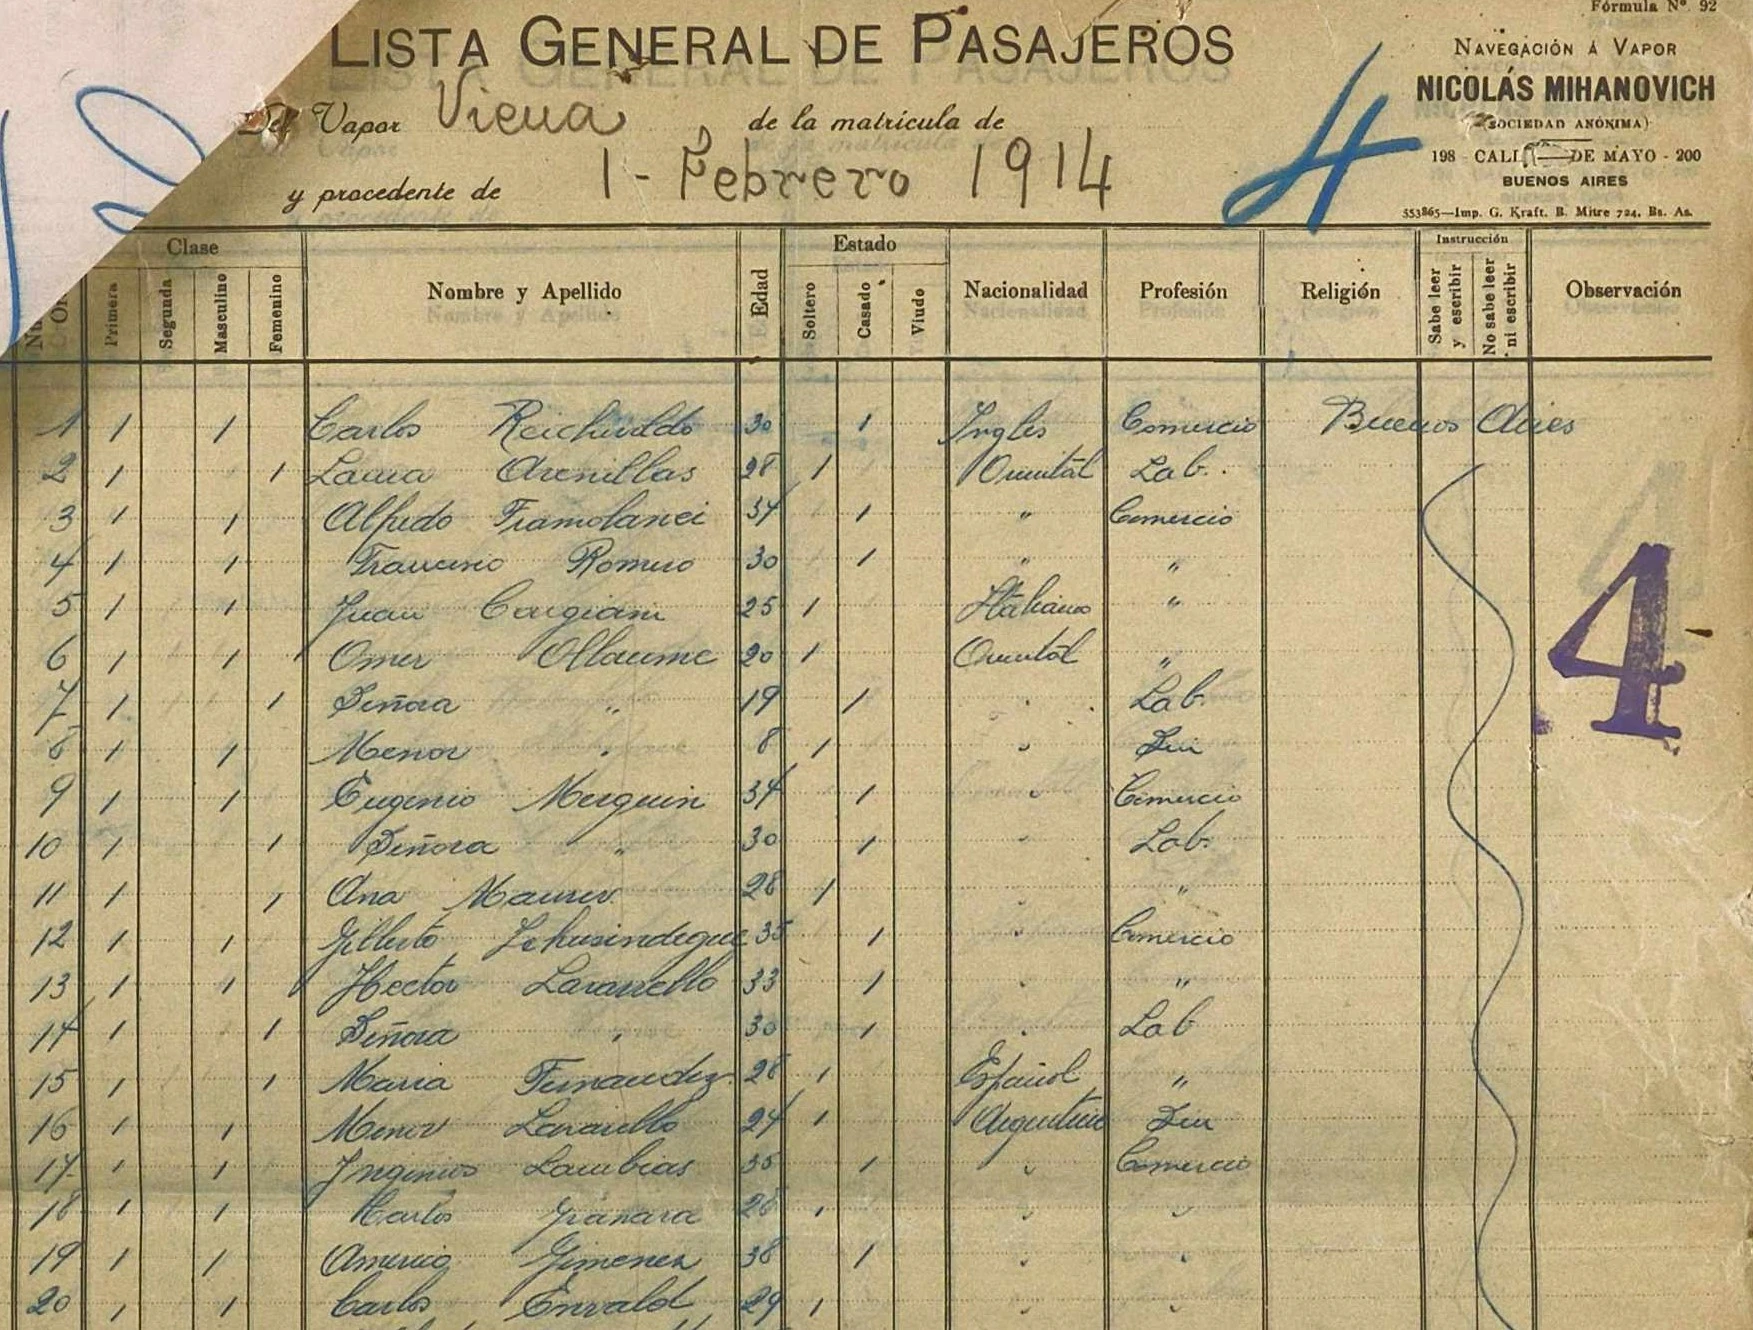 Fórmula Nº 92
LISTA GENERAL DE PASAJEROS
NAVEGACIÓN Á VAPOR
NICOLÁS MIHANOVICH
(SOCIEDAD ANÓNIMA)
198 - CALLE DE MAYO - 200
BUENOS AIRES
553865—Imp. G. Kraft. B. Mitre 724, Bs. As.
Del Vapor Viena de la matrícula de
y procedente de 1 - Febrero 1914
4
Clase Estado Instrucción
Primera Segunda Masculino Femenino Nombre y Apellido Edad Soltero Casado Viudo Nacionalidad Profesión Religión Sabe leer y escribir No sabe leer ni escribir Observación
1 1 1 Carlos 30 1 Ingles Comercio Buenos Aires
2 1 1 Laura Arenillas 28 1 Oriental Lab.
3 1 1 Alfredo 34 1 " Comercio
4 1 1 Francisco Romero 30 1 " "
4
5 1 1 Juan 25 1 Italiano "
6 1 1 Omer 20 1 Oriental "
7 1 1 Señora " 19 1 " Lab.
8 1 1 Menor " 8 1 "
9 1 1 Eugenio 34 1 " Comercio
10 1 1 Señora " 30 1 " Lab.
11 1 1 Ana Maurer 28 1 " "
12 1 1 Gilberto 35 1 " Comercio
13 1 1 Hector 33 1 " "
14 1 1 Señora " 30 1 " Lab
15 1 1 Maria Fernandez 28 1 Español "
16 1 1 Menor 24 1 Argentino
17 1 1 Lambias 35 1 " Comercio
18 1 1 Carlos Granara 28 1 " "
19 1 1 Americo Gimenez 38 1 " "
20 1 1 Carlos Envald 29 1 " "